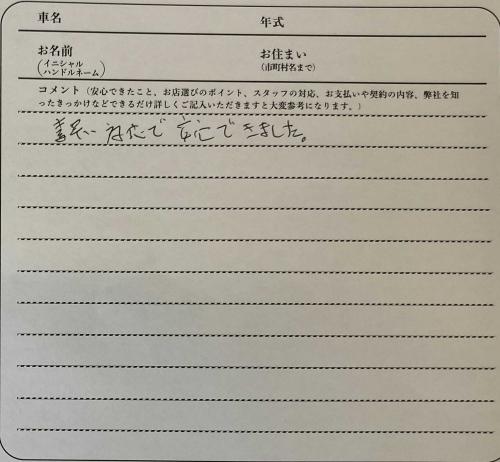 車名 年式
お名前 (イニシャル ハンドルネーム) お住まい (市町村名まで)
コメント(安心できたこと、お店選びのポイント、スタッフの対応、お支払いや契約の内容、弊社を知
ったきっかけなどできるだけ詳しくご記入いただきますと大変参考になります。)
素早い対応で安心できました。